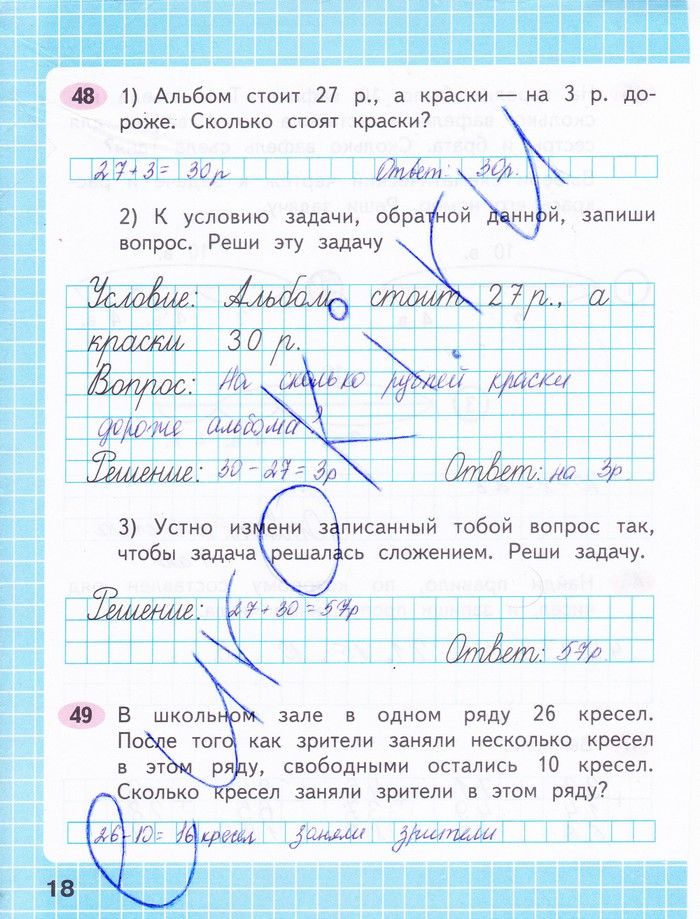 48 1) Альбом стоит 27 р., а краски — на 3 р. до-
роже. Сколько стоят краски?
27+3= 30р Ответ: 30р.
2) К условию задачи, обратной данной, запиши
вопрос. Реши эту задачу
Условие: Альбом стоит 27р., а
краски 30 р.
Вопрос: На сколько рублей краски
дороже альбома?
Решение: 30-27=3р Ответ: на 3р.
3) Устно измени записанный тобой вопрос так,
чтобы задача решалась сложением. Реши задачу.
Решение: 27+30=57р
Ответ: 57р
49 В школьном зале в одном ряду 26 кресел.
После того как зрители заняли несколько кресел
в этом ряду, свободными остались 10 кресел.
Сколько кресел заняли зрители в этом ряду?
26-10= 16 кресел заняли зрители
18